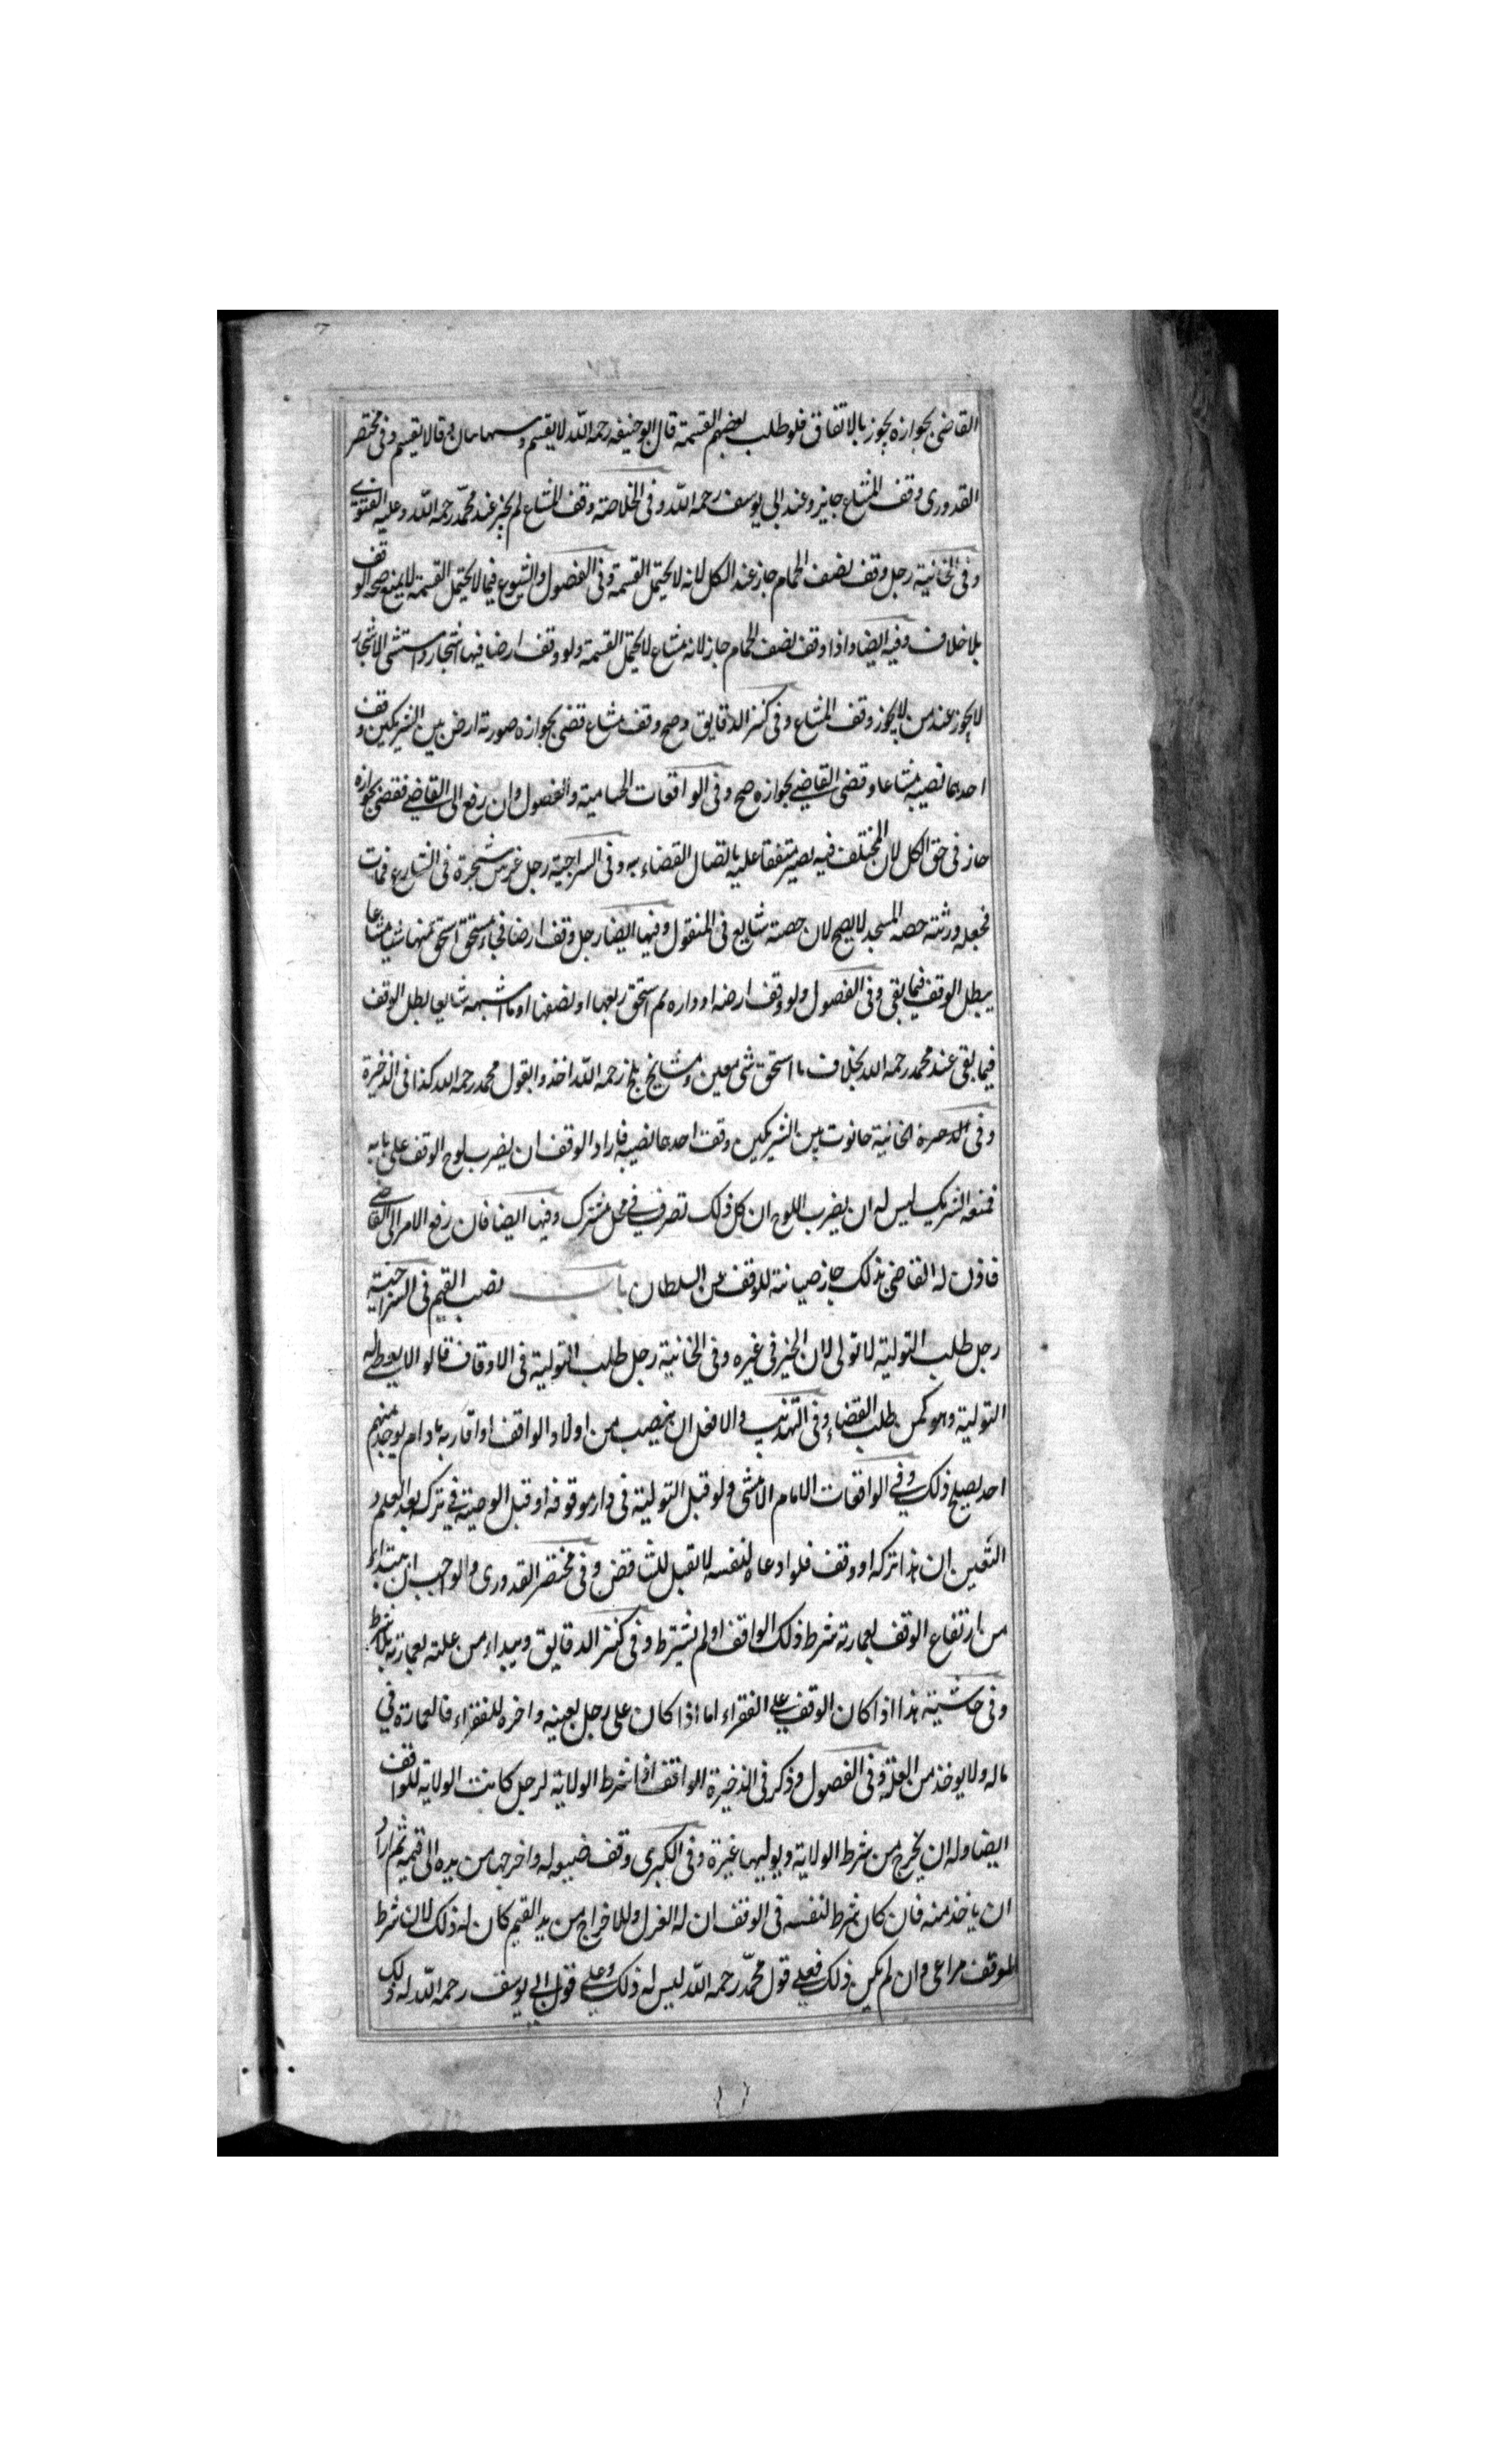 القاضى بجوازه يجوز بالاتفاق فلو طلب بعضهم القسمة قال ابو حنيفه رحمه الله لا يقسم و وقالا يقسم وفى مختصر
القدورى وقف المشاع جايز وعند ابى يوسف رحمه الله وفى الخلاصة وقف المشاع لم يجز عند محمد رحمه الله وعليه الفتوى
وفى الخانية رجل وقف نصف الحمام جاز عند الكل لانه لا يحتمل القسمة وفى الفصول والشيوع فيما لا يحتمل القسمة لا يمنع صحة الوقف
بلا خلاف وفيه ايضا واذا وقف نصف الحمام جاز لانه مشاع لا يحتمل القسمة ولو وقف ارضا فيها اشجار واستثنى الاشجار
لا يجوز عند من لا يجوز وقف المشاع وفى كنز الدقايق وصح وقف مشاع قضى بجوازه صورته ارض بين الشريكين وقف
احدهما نصيبه مشاعا وقضى القاضى بجوازه صح وفى الواقعات الحسامية والفصول وان رفع الى القاضى فقضى بجوازه
جاز فى حق الكل لان المختلف فيه يصير متفقا عليه باتصال القضاء به وفى السراجية رجل غرس شجرة فى الشارع فمات
فجعله ورثته حصه المسجد لا يصح لان حصته شايع فى المنقول وفيها ايضا رجل وقف ارضا فجاء مستحق استحق منها شيا مشاعا
يبطل الوقف فيما بقى وفى الفصول ولو وقف ارضه او داره ثم استحق ربعها او نصفها او ما اشبهه شايعا بطل الوقف
فيما بقى عند محمد رحمه الله بخلاف ما استحق شى معين ومشايخ بلخ رحمه الله اخذوا بقول محمد رحمه الله كذا فى الذخيرة
وفى الخانية حانوت بين الشريكين وقف احدهما نصيبه فاراد الوقف ان يضرب لوح الوقف على بابه
فمنعه الشريك ليس له ان يضرب اللوح ان كل ذلك تصرف فى محل مشترك وفيها ايضا فان رفع الامر الى القاضى
فاذن له القاضى بذلك جاز صيانة للوقف من السلطان باب نصب القيم فى السراجية
رجل طلب التولية لا تولى لان الخير فى غيره وفى الخانية رجل طلب التولية فى الاوقاف قالوا لا يعطى له
التولية وهو كمن طلب القضاء وفى التهذيب والافضل ان ينصب من اولاد الواقف او اقاربه مادام يوجد منهم
احد يصلح ذلك وفى الواقعات الامام ولو قبل التولية فى دار موقوفه او قبل الوصية فى تركه بعد العلم و
التعين ان هذا تركه او وقف فلو ادعاه لنفسه لا تقبل للتناقض وفى مختصر القدورى والواجب ان يبتداء
من ارتفاع الوقف بعمارته شرط ذلك الواقف او لم يشترط وفى كنز الدقايق ويبداء من غلته بعمارته بلا شرط
وفى حاشيته هذا اذا كان الوقف على الفقراء اما اذا كان على رجل بعينه واخره للفقراء فالعمارة فى
ماله ولا يوخذ من الغلة وفى الفصول وذكر فى الذخيرة الواقف اذا شرط الولاية لرجل كانت الولاية للواقف
ايضا وله ان يخرج من شرط الولاية ويوليها غيره وفى الكبرى وقف ضيعه له واخرجها من يده الى قيمه ثم اراد
ان ياخذ منه فان كان شرط لنفسه فى الوقف ان له العزل والاخراج من يد القيم كان له ذلك لان شرط
الموقف مراعى وان لم يكن ذلك فعلى قول محمد رحمه الله ليس له ذلك وعلى قول ابى يوسف رحمه الله له ذلك